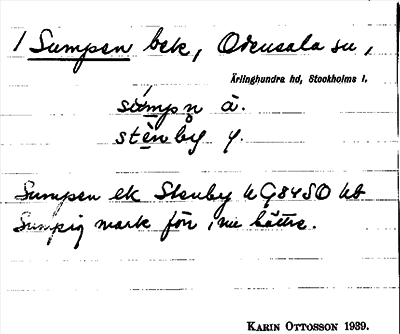 1 Sumpen bek, Odensala sn,
Ärlinghundra hd, Stockholms l.
sùmpn å.
stènby y.
Sumpen ek Stenby hG84SO
Sumpig mark förr, nu bättre.
KARIN OTTOSSON 1939.